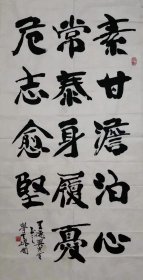 素甘澹泊心
常泰身履憂
危志愈堅